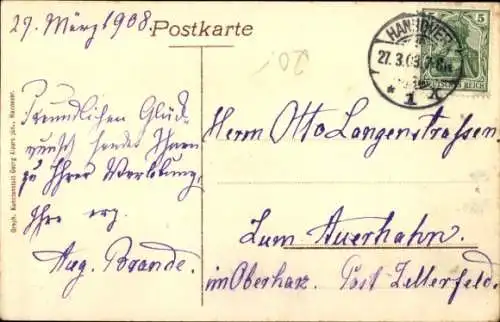 27. März 1908.
Postkarte
20.-
HANNOVER
27.3.08.7-8
* 1 X
5
DEUTSCHES REICH
Freundlichen Glück-
wunsch sendet Ihnen
zu Ihrer Verlobung,
Ihr erg.
Aug. Brande.
Herrn Otto Langenstrassen
Zum Auerhahn.
im Oberharz. Post Zellerfeld.
Graph. Kunstanstalt Georg Alpers jun., Hannover.